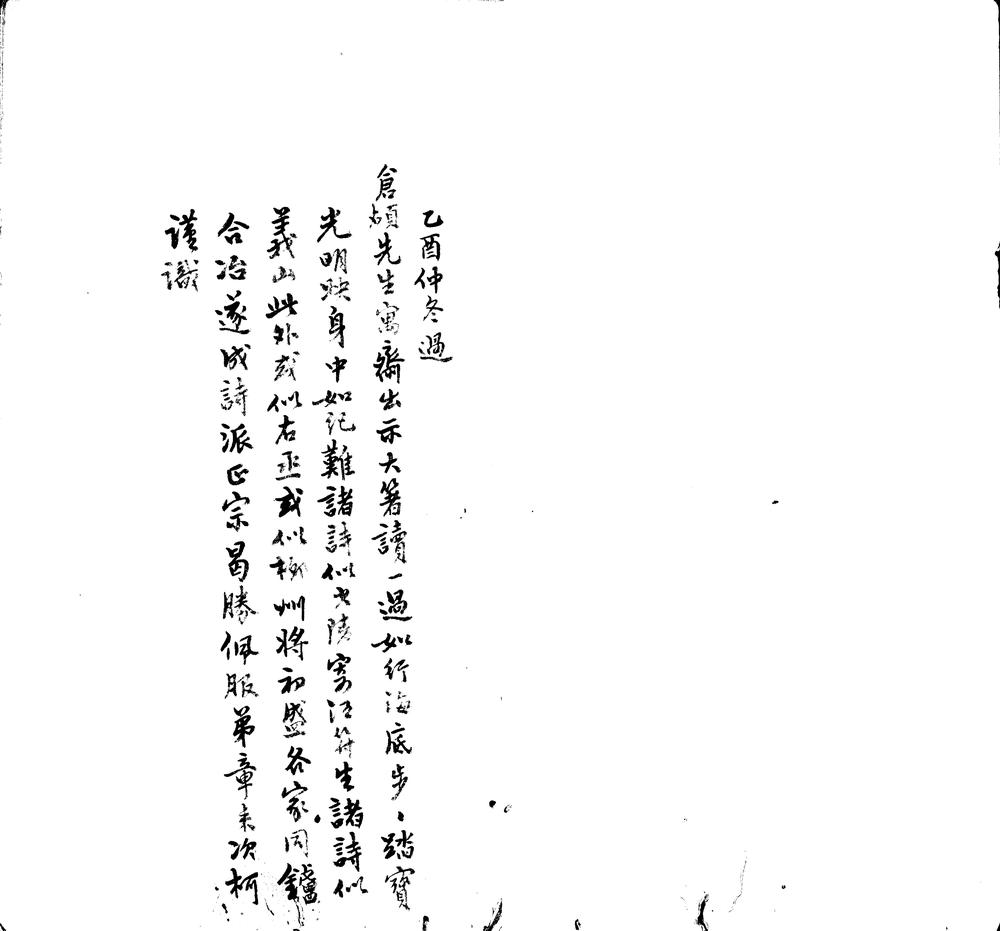 乙酉仲冬過
倉碩先生寓齋出示大箸讀一過如行海底步、踏寶
光明映身中如記難諸詩似少陵寄江符生諸詩似
義山此外或似右丞或似柳州將初盛各家同鑪
合冶遂成詩派正宗曷勝佩服弟章耒次柯
謹識